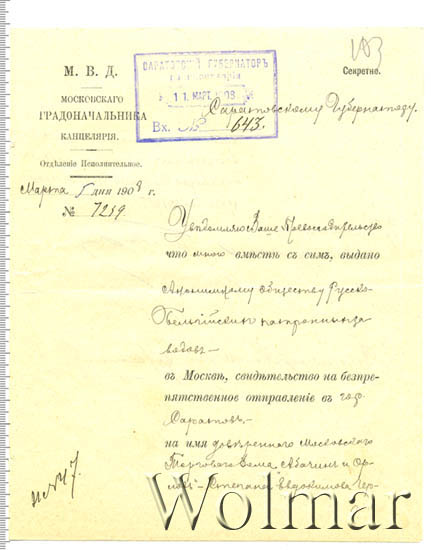 М. В. Д.
МОСКОВСКАГО
ГРАДОНАЧАЛЬНИКА
КАНЦЕЛЯРІЯ.
Отдѣленіе Исполнительное.
Марта 5 дня 1908 г.
№ 7259
САРАТОВСКІЙ ГУБЕРНАТОРЪ
11 МАРТ. 1908
Вх. № 643.
103
Секретно.
Саратовскому Губернатору.
Увѣдомляю Ваше Превосходительство
что мною вмѣстѣ съ симъ, выдано
Анонимному Обществу Русско-
Бельгійскихъ патронныхъ за
водовъ
въ Москвѣ, свидѣтельство на безпре-
пятственное отправленіе въ гор.
Саратовъ
на имя довѣреннаго Московскаго
Торговаго Дома Абачинъ и Ор-
ловъ - Степана Евдокимова
Wolmar